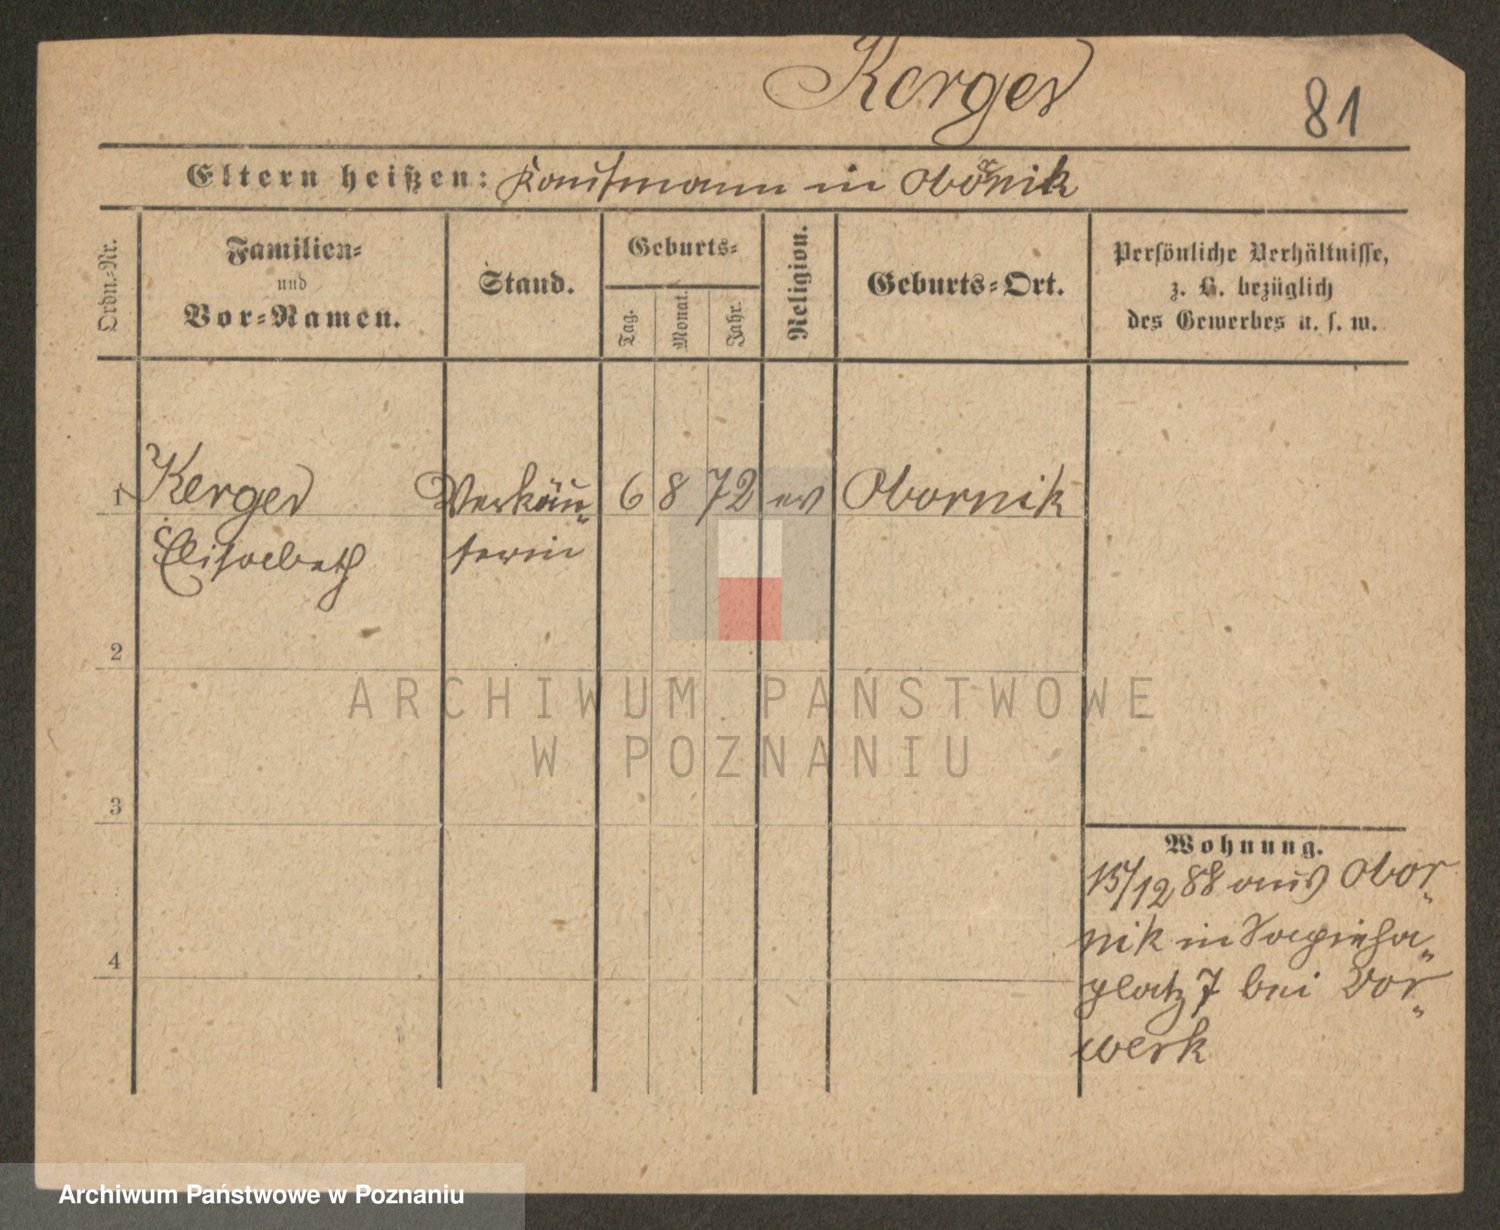 Kerger
81
Eltern heißen: Kaufmann in Obornik
Ordn.-Nr.
Familien-
und
Vor-Namen.
Stand.
Geburts-
Tag.
Monat.
Jahr.
Religion.
Geburts-Ort.
Persönliche Verhältnisse,
z. B. bezüglich
des Gewerbes u. s. w.
1 Kerger Verkäu- 6 8 72 ev Obornik
Elisabeth ferin
2
ARCHIWUM PAŃSTWOWE
W POZNANIU
3
Wohnung.
15/12 88 aus Obor-
nik in Sapieha-
platz 7 bei Vor-
werk
4
Archiwum Państwowe w Poznaniu